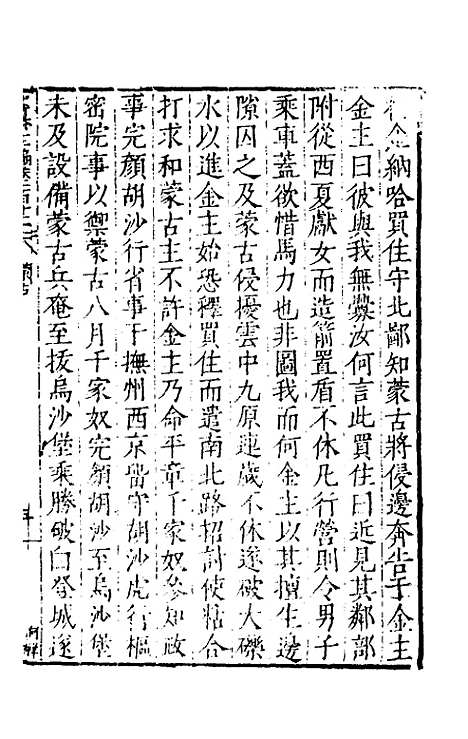 納哈買住守北鄙知蒙古將侵邊奔告于金主
金主曰彼與我無釁汝何言此買住曰近見其鄰部
附從西夏獻女而造箭置盾不休凡行營則令男子
乘車蓋欲惜馬力也非圖我而何金主以其擅生邊
隙囚之及蒙古侵擾雲中九原連歲不休遂破大礫
水以進金主始恐釋買住而遣南北路招討使粘合
打求和蒙古主不許金主乃命平章千家奴參知政
事完顏胡沙行省事于撫州西京留守胡沙虎行樞
密院事以禦蒙古八月千家奴完顏胡沙至烏沙堡
未及設備蒙古兵奄至拔烏沙堡乘勝破白登城遂